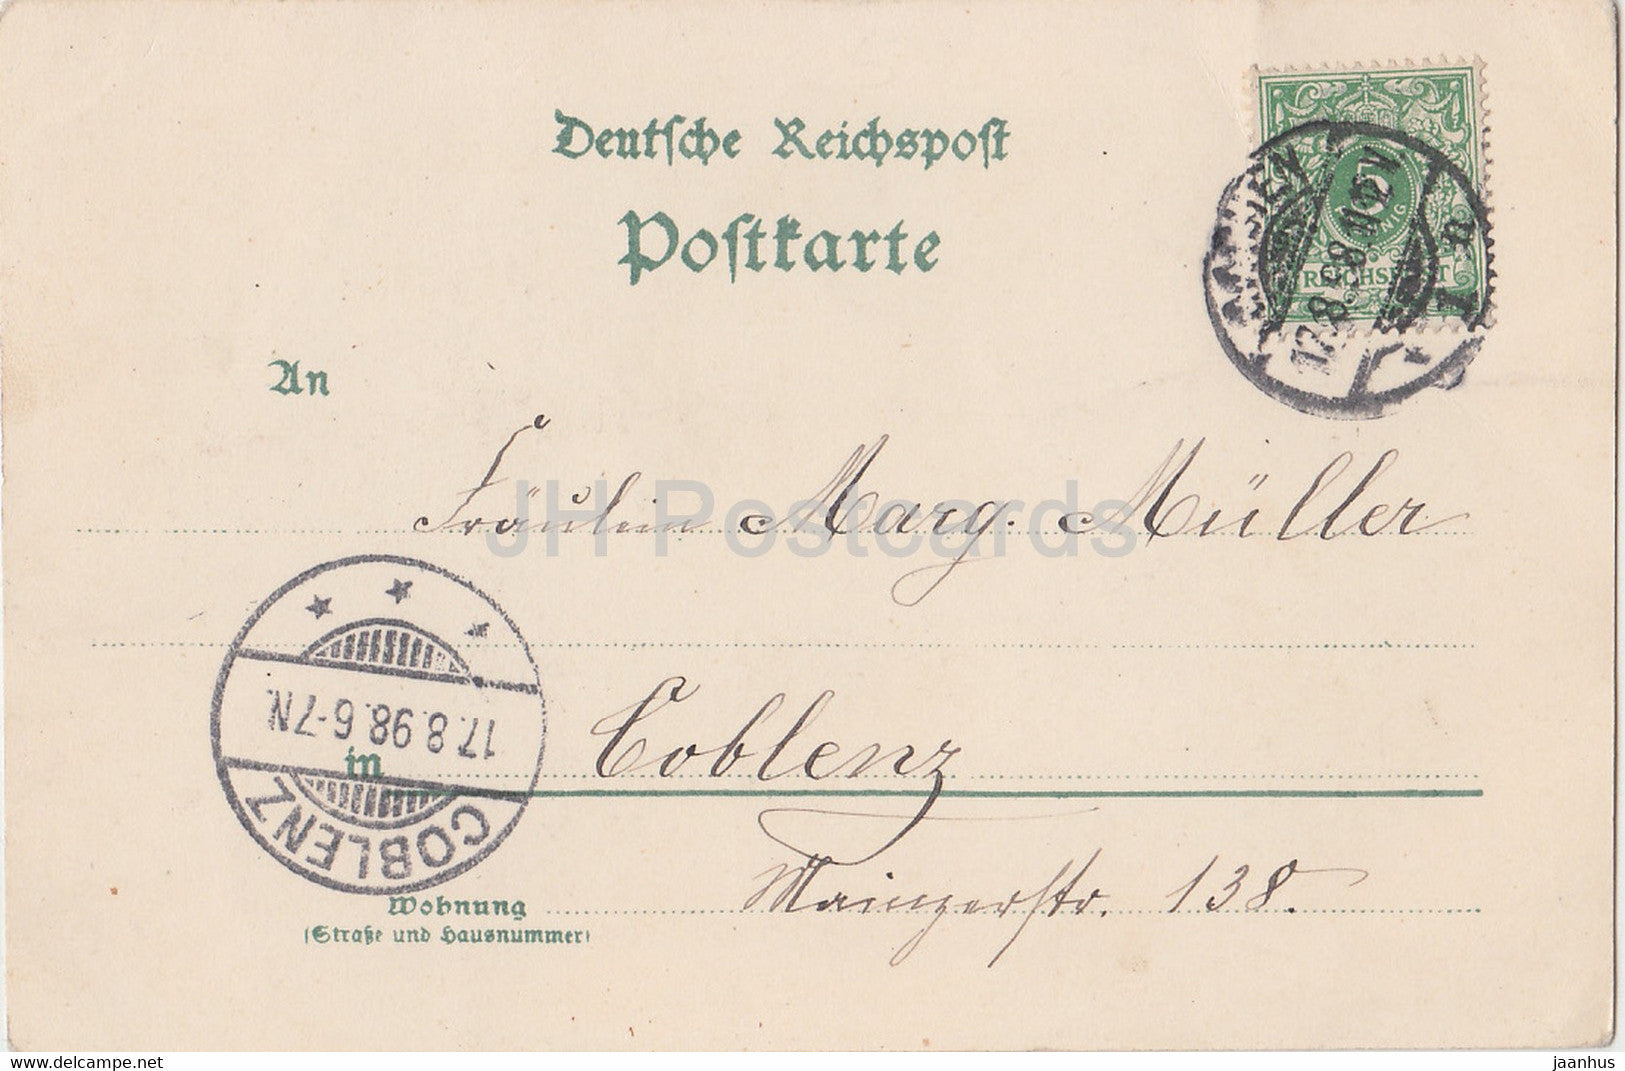 Deutsche Reichspost
Postkarte
5
REICHSPOST
17.8.98.11-12V.
1.n
An
Fräulein Marg. Müller
JH Postcards
17.8.98.6-7N.
COBLENZ
in Coblenz
Wohnung Mainzerstr. 138.
(Straße und Hausnummer)
http://www.delcampe.net
jaanhus